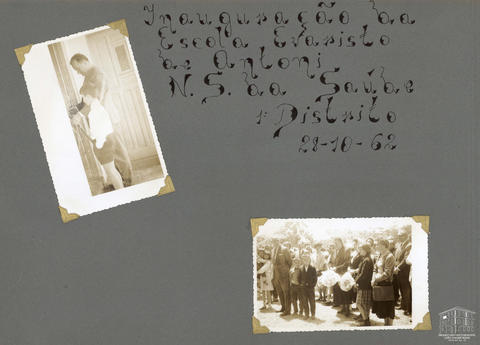 Inauguração da
Escola Evaristo
de Antoni
N. S. da Saúde
1º Distrito
28-10-62